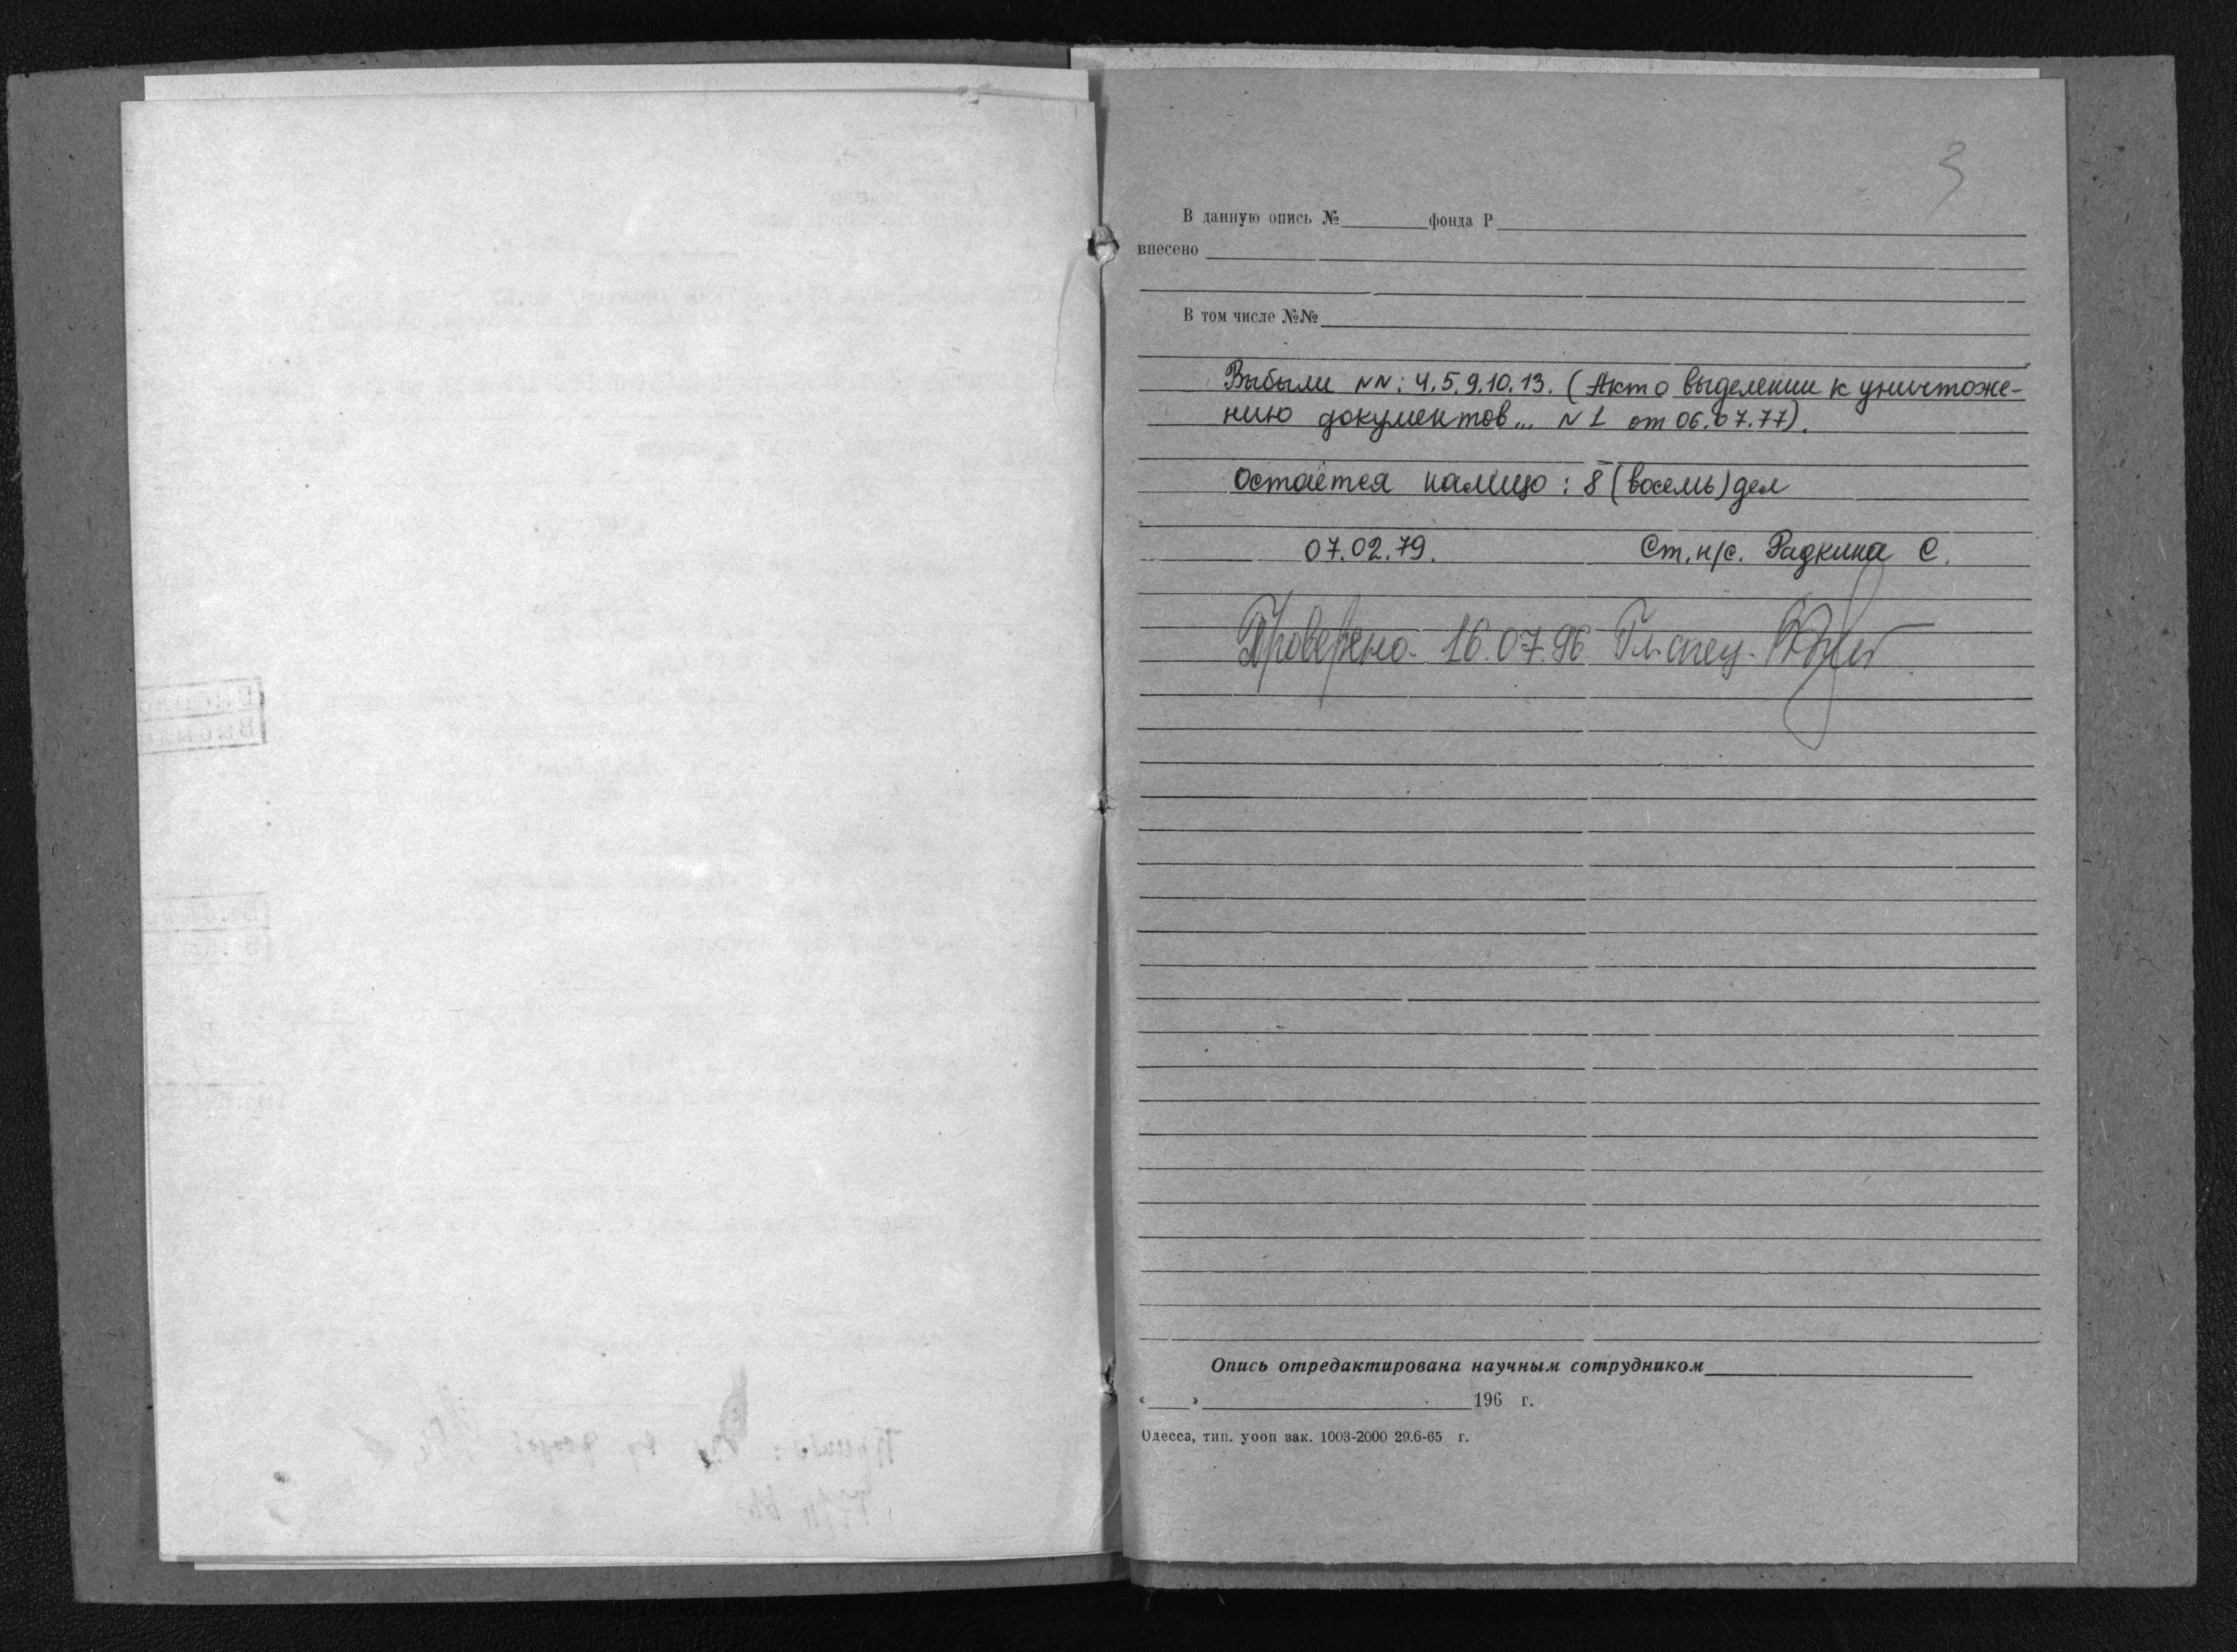 3
В данную опись № фонда Р
внесено
В том числе №№
Выбыли NN: 4.5.9.10.13. (Акт о выделении к уничтоже-
нию документов... N 1 от 06.07.77).
Остаётся налицо: 8 (восемь) дел
07.02.79. Ст. н/с. Радкина С.
Проверено 16.07.96 Гл. спец.
Опись отредактирована научным сотрудником
« » 196 г.
Одесса, тип. уооп зак. 1003-2000 29.6-65 г.